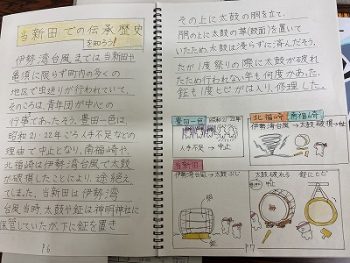 当新田での伝承歴史
を知ろう!
伊勢湾台風までは当新田や
番須に限らず町内の多くの
地区で虫送りが行われていて、
そのころは、青年団が中心の
行事であった。豊田一色は、
昭和21・22年ごろ人手不足などの
理由で中止となり、南福崎や
北福崎は伊勢湾台風で太鼓
が破損したことにより、途絶え
てしまった。当新田は伊勢湾
台風当時、太鼓や鉦は神明神社に
保管していたが、下に鉦を置き
P6
その上に太鼓の胴を立て、
胴の上に太鼓の革(鼓面)を置いて
いたため、太鼓は濡らずに済んだそう。
だが1度祭りの際に太鼓が破れ
たため行われない年も何度かあった。
鉦も1度ヒビがは入り、修理した。
豊田一色
昭和21・22年
中止
北福崎
南福崎
伊勢湾台風→太鼓破損→中止
当新田
伊勢湾台風→太鼓ぶじ
太鼓が破れる
鉦にヒビ
P7